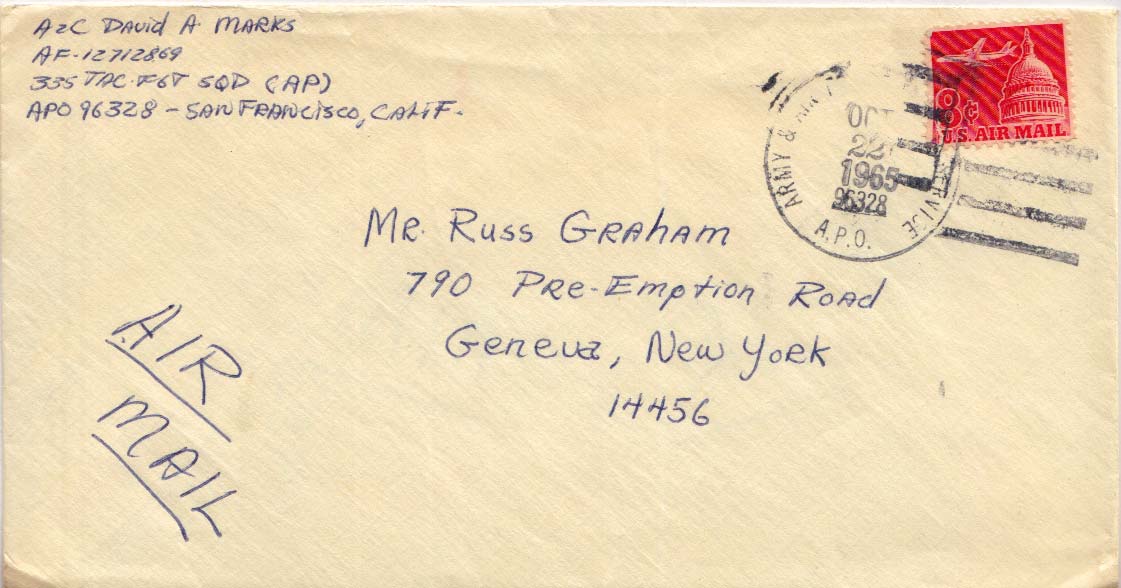 A2C David A Marks
AF-12712869
335 TAC FGT SQD (AP)
APO 96328 - San Francisco, Calif.
8¢
U.S. AIR MAIL
ARMY & AIR SERVICE
OCT
22
1965
96328
A.P.O.
Mr. Russ Graham
790 Pre-Emption Road
Geneva, New York
14456
AIR
MAIL